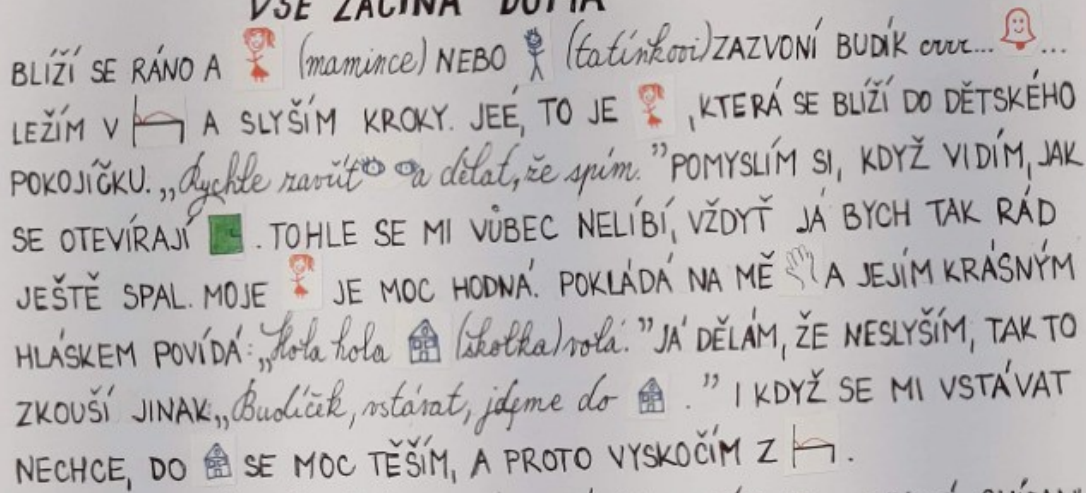 VŠE ZAČÍNÁ DOMA
BLÍŽÍ SE RÁNO A (mamince) NEBO (tatínkovi) ZAZVONÍ BUDÍK crrr... ...
LEŽÍM V A SLYŠÍM KROKY. JEÉ, TO JE , KTERÁ SE BLÍŽÍ DO DĚTSKÉHO
POKOJÍČKU. „Rychle zavřít a dělat, že spím.” POMYSLÍM SI, KDYŽ VIDÍM, JAK
SE OTEVÍRAJÍ . TOHLE SE MI VŮBEC NELÍBÍ, VŽDYŤ JÁ BYCH TAK RÁD
JEŠTĚ SPAL. MOJE JE MOC HODNÁ. POKLÁDÁ NA MĚ A JEJÍM KRÁSNÝM
HLÁSKEM POVÍDÁ: „Hola hola (školka) volá.” JÁ DĚLÁM, ŽE NESLYŠÍM, TAK TO
ZKOUŠÍ JINAK „Budíček, vstávat, jdeme do .” I KDYŽ SE MI VSTÁVAT
NECHCE, DO SE MOC TĚŠÍM, A PROTO VYSKOČÍM Z .